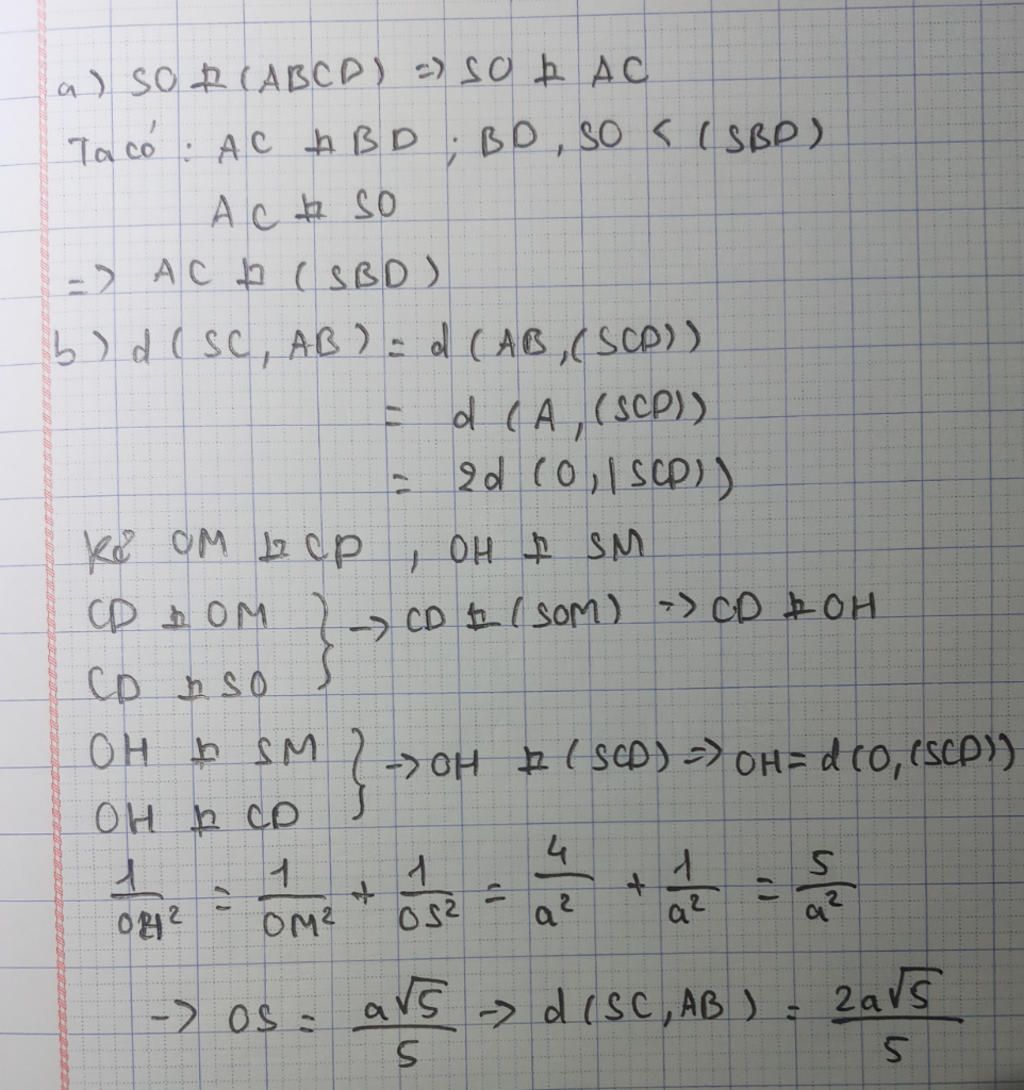 a) SO ⊥ (ABCD) => SO ⊥ AC
Ta có : AC ⊥ BD ; BD, SO < (SBD)
AC ⊥ SO
=> AC ⊥ (SBD)
b) d (SC, AB) = d (AB, (SCD))
= d (A, (SCD))
= 2d (O, (SCD))
Kẻ OM ⊥ CD , OH ⊥ SM
CD ⊥ OM
CD ⊥ SO } -> CD ⊥ (SOM) -> CD ⊥ OH
OH ⊥ SM
OH ⊥ CD } -> OH ⊥ (SCD) => OH = d(O, (SCD))
1/OH² = 1/OM² + 1/OS² = 4/a² + 1/a² = 5/a²
-> OS = a√5/5 -> d (SC, AB) = 2a√5/5